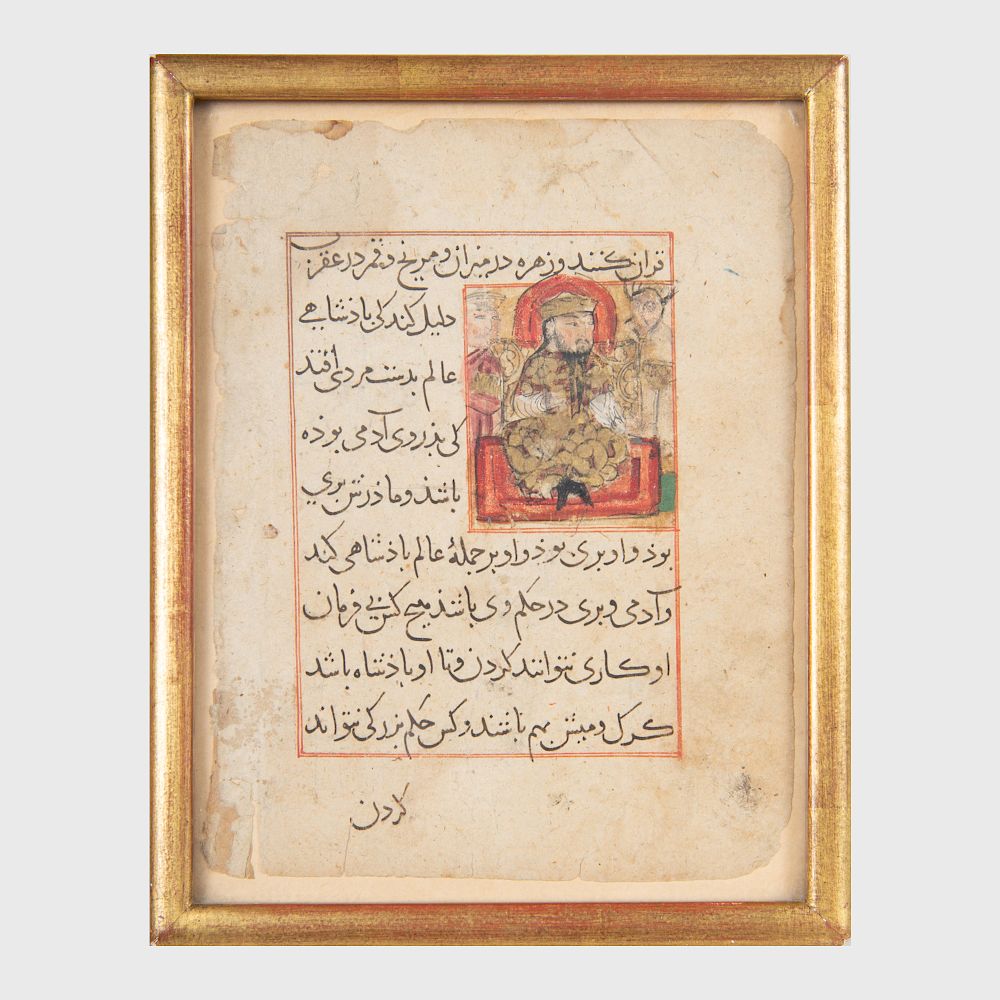 قران کنند و زهره در میزان و مریخ و قمر در عقرب
دلیل کند کی باذشاهی
عالم بدست مردی افتد
کی بذر وی آدمی بوذه
باشذ و ماذرش بری
بوذ و او بری بوذ و او بر جملهٔ عالم باذشاهی کند
و آدمی و بری در حکم وی باشذ هیچ کس بی فرمان
او کاری نتوانند کردن و تا او باذشاه باشد
کرک و میش بهم باشند و کس حکم بزرکی نتواند
کردن